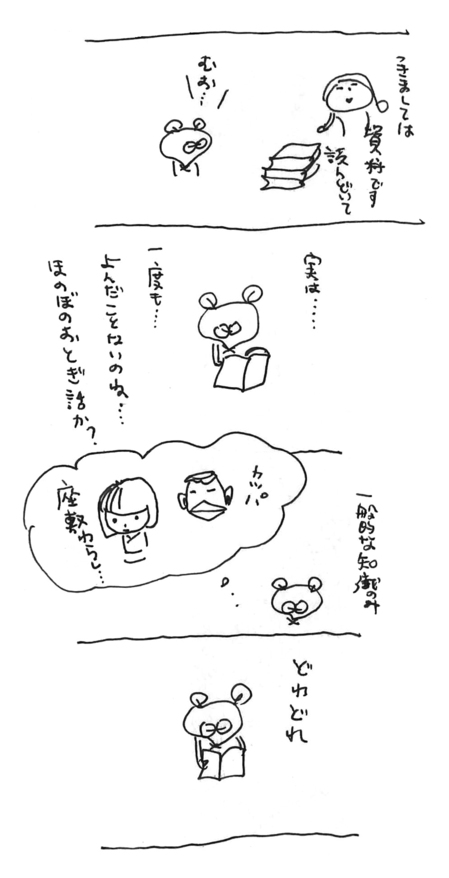 つきましては
資料です
読んどいて
むお…
実は……
一度も…
よんだことないのね…
ほのぼのおとぎ話か？
一般的な知識のみ
カッパ
座敷わらし…
どれどれ